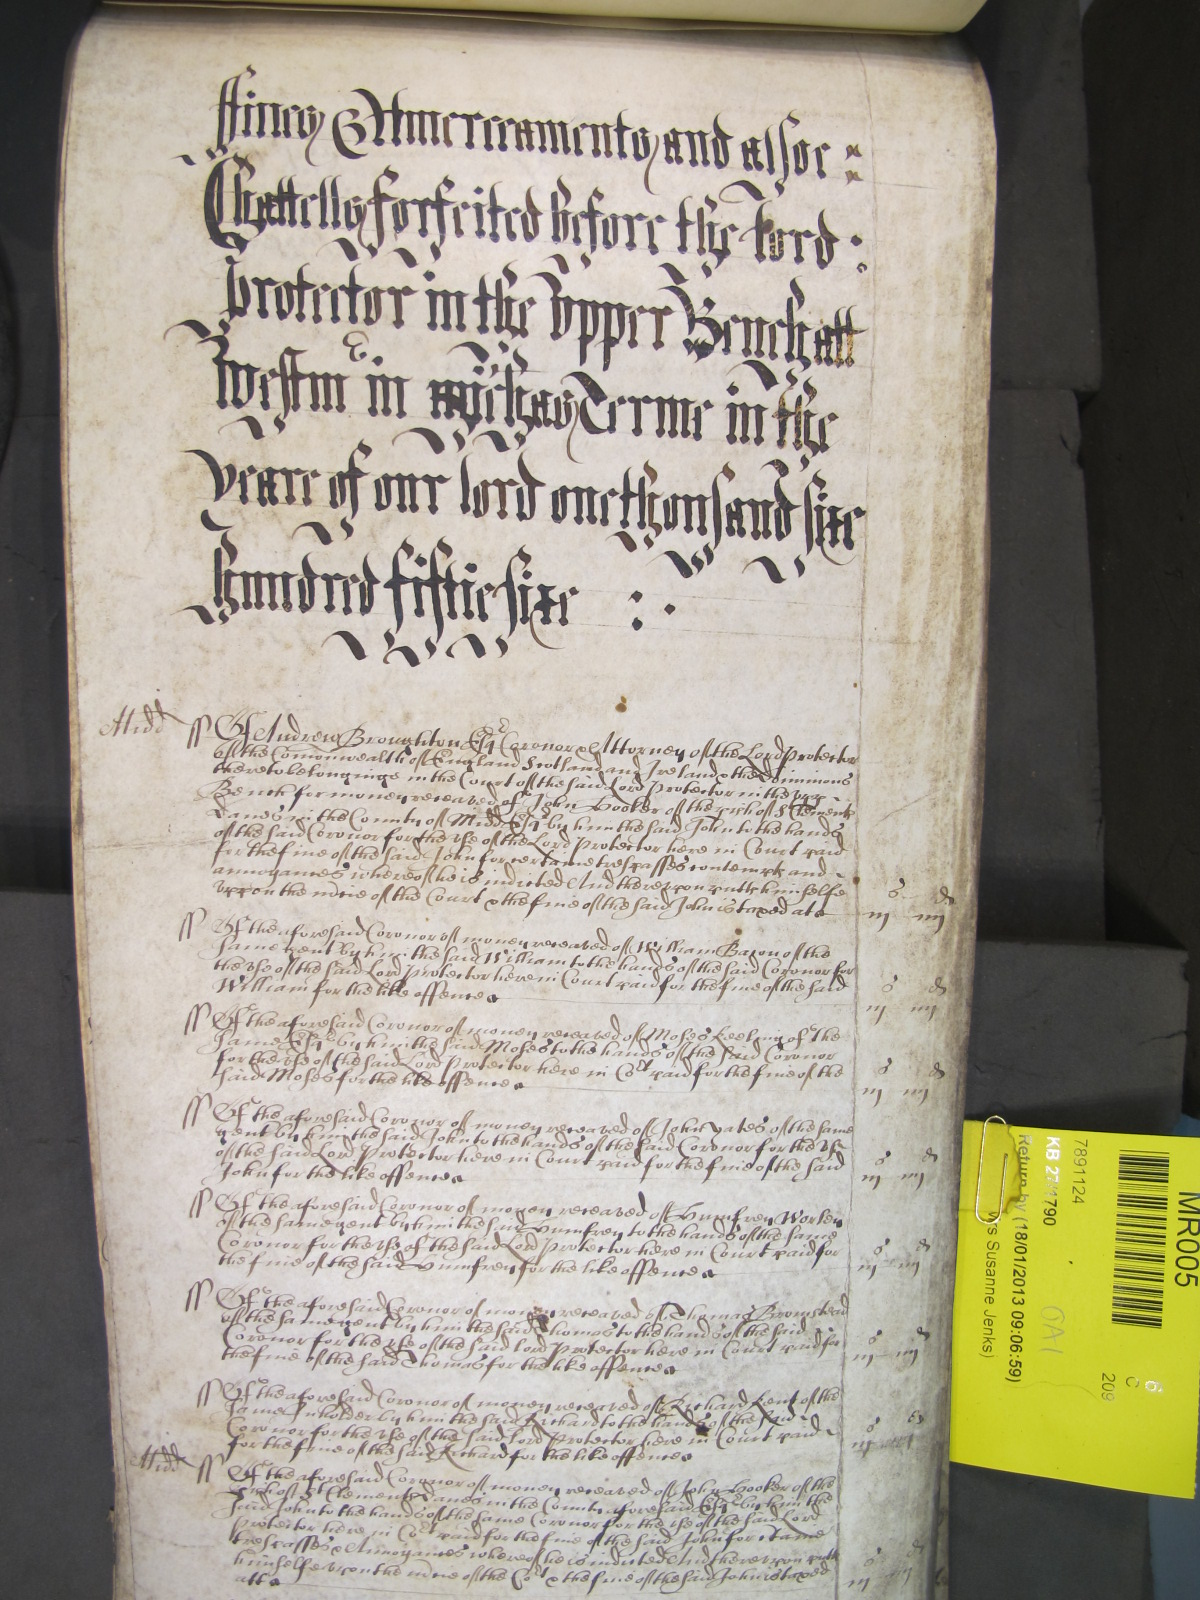 ffines Amerceamentes and alsoe
Chattells forfeited before the Lord
Protector in the Upper Bench att
Westmr in Michas Terme in the
yeare of our lord one thousand sixe
hundred fiftie sixe
Midd ss Of Andrew Broughton Esqr Coronor & Attorney of the Lord Protector
of the Comonwealth of England Scotland and Ireland & the Dominions
thereto belonginge in the Court of the said Lord Protector in the upper
Bench for money receaved of John Hooker of the pish of St Clements
Danes in the County of Midd Esqr by him the said John to the hands
of the said Coronor for the use of the Lord Protector here in Court paid
for the fine of the said John for certaine trespasses contempts and
annoyances whereof he is indicted And thereupon putteth himselfe
uppon the mcie of the Court & the fine of the said John is taxed att iij s iiij d
ss Of the aforesaid Coronor of money receaved of William Bacon of the
same gent by him the said William to the hands of the said Coronor for
the use of the said Lord Protector here in Court paid for the fine of the said
William for the like offence iij s iiij d
ss Of the aforesaid Coronor of money receaved of Moses Keeling of the
same Esqr by him the said Moses to the hands of the said Coronor
for the use of the said Lord Protector here in Cort paid for the fine of the
said Moses for the like offence iij s iiij d
ss Of the aforesaid Coronor of money receaved of John Yates of the same
gent by him the said John to the hands of the said Coronor for the use
of the said Lord Protector here in Court paid for the fine of the said
John for the like offence iij s iiij d
ss Of the aforesaid Coronor of money receaved of Humfrey Worley
of the same gent by him the said Humfrey to the hands of the same
Coronor for the use of the said Lord Protector here in Court paid for
the fine of the said Humfrey for the like offence iij s iiij d
ss Of the aforesaid Coronor of money receaved of Thomas Bromstead
of the same gent by him the said Thomas to the hands of the said
Coronor for the use of the said lord Protector here in Court paid for
the fine of the said Thomas for the like offence iij s iiij d
ss Of the aforesaid Coronor of money receaved of Richard Kent of the
same Inholder by him the said Richard to the hands of the said
Coronor for the use of the said Lord Protector here in Court paid
for the fine of the said Richard for the like offence
Midd ss Of the aforesaid Coronor of money receaved of John Hooker of the
pish of St Clements Danes in the County aforesaid Esqr by him the
said John to the hands of the same Coronor for the use of the said Lord
Protector here in Cort paid for the fine of the said John for certaine
trespasses & Annoyances whereof he is indicted And thereupon putts
himselfe uppon the mcie of the Cort & the fine of the said John is taxed
att
MR005
7891124
KB 27/1790
Return by (18/01/2013 09:06:59)
Susanne Jenks)
6
C
209